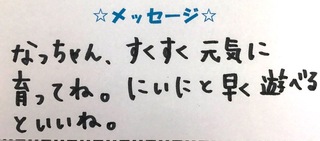 ☆メッセージ☆
なっちゃん、すくすく元気に
育ってね。にいにと早く遊べる
といいね。